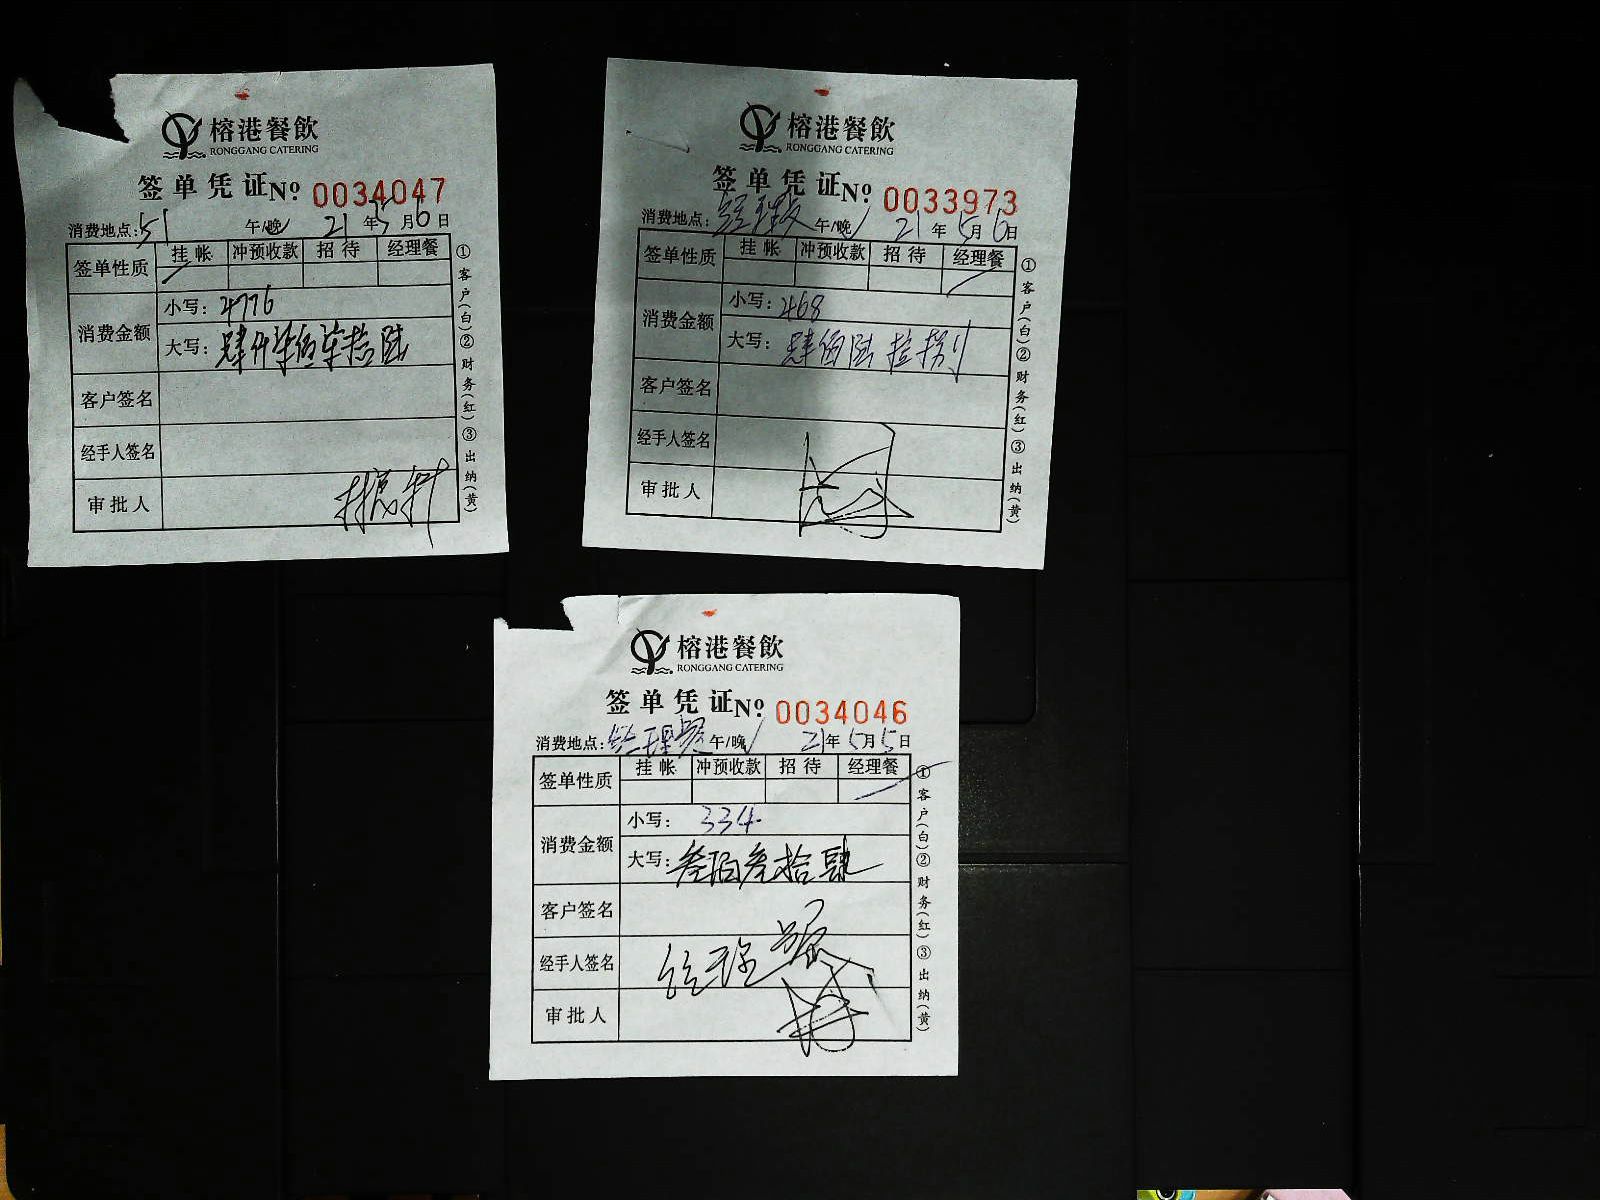 榕港餐飲
RONGGANG CATERING
签单凭证 № 0034047
消费地点: 51 午/晚 21年5月6日
签单性质 挂帐 冲预收款 招待 经理餐
消费金额 小写: 4776
大写: 肆仟柒佰柒拾陆
客户签名
经手人签名
审批人
①客户(白)②财务(红)③出纳(黄)
榕港餐飲
RONGGANG CATERING
签单凭证 № 0033973
消费地点: 经理 午/晚 21年5月6日
签单性质 挂帐 冲预收款 招待 经理餐
消费金额 小写: 468
大写: 肆佰陆拾捌
客户签名
经手人签名
审批人
①客户(白)②财务(红)③出纳(黄)
榕港餐飲
RONGGANG CATERING
签单凭证 № 0034046
消费地点: 经理餐 午/晚 21年5月5日
签单性质 挂帐 冲预收款 招待 经理餐
消费金额 小写: 334
大写: 叁佰叁拾肆
客户签名
经手人签名 经理餐
审批人
①客户(白)②财务(红)③出纳(黄)